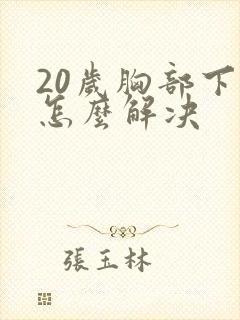 20歲胸部下
怎麼解决
張玉林